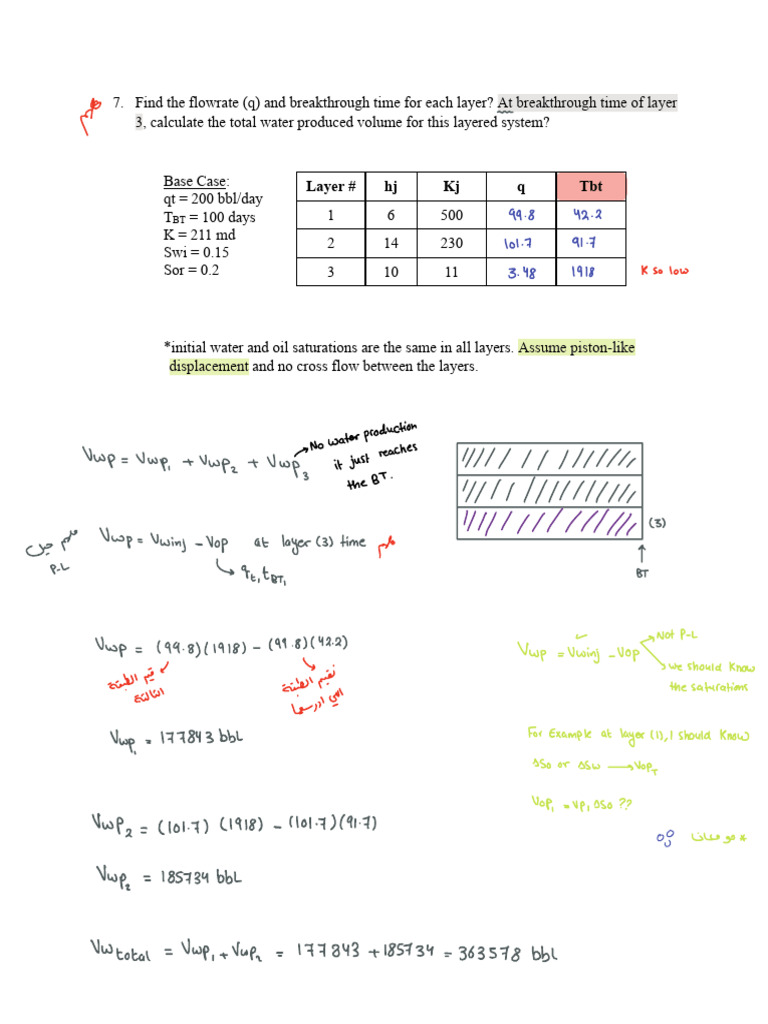 7. Find the flowrate (q) and breakthrough time for each layer? At breakthrough time of layer
3, calculate the total water produced volume for this layered system?
Base Case:
qt = 200 bbl/day
TBT = 100 days
K = 211 md
Swi = 0.15
Sor = 0.2
Layer # hj Kj q Tbt
1 6 500 99.8 42.2
2 14 230 101.7 91.7
3 10 11 3.48 1918
K so low
*initial water and oil saturations are the same in all layers. Assume piston-like
displacement and no cross flow between the layers.
Vwp = Vwp1 + Vwp2 + Vwp3
No water production
it just reaches
the BT.
(3)
BT
Vwp = Vwinj - Vop at layer (3) time
P-L
qt, tBT1
Vwp = (99.8)(1918) - (99.8)(42.2)
قيم الطبقة
الثالثة
نقيم الطبقة
Vwp1 = 177843 bbL
Vwp = Vwinj - Vop
Not P-L
we should know
the saturations
For Example at layer (1), I should know
ΔSo or ΔSw → VopT
Vop1 = Vp1 ΔSo ??
Vwp2 = (101.7) (1918) - (101.7)(91.7)
Vwp2 = 185734 bbL
Vwtotal = Vwp1 + Vwp2 = 177843 + 185734 = 363578 bbl